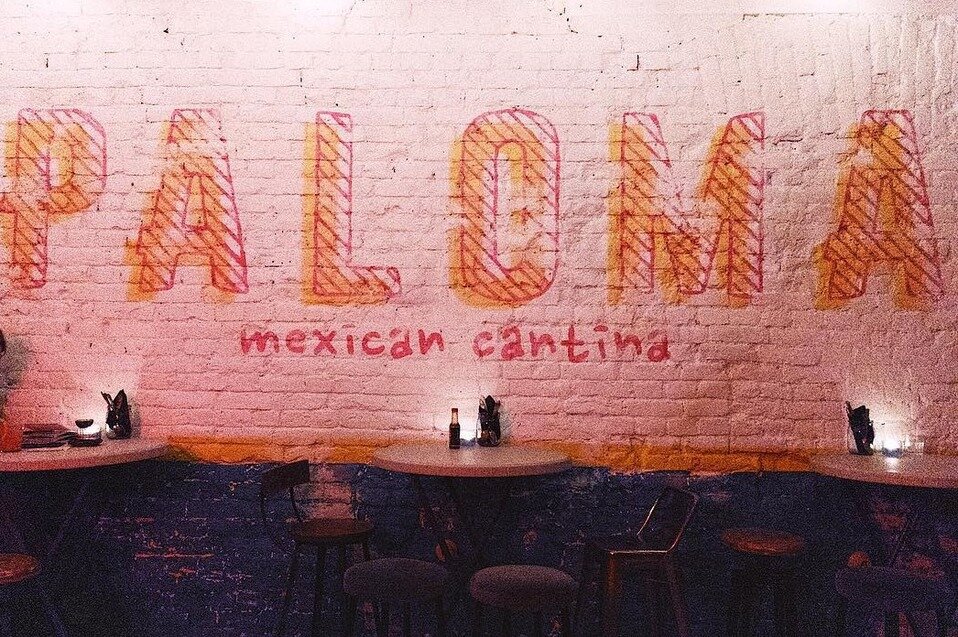 PALOMA
mexican cantina